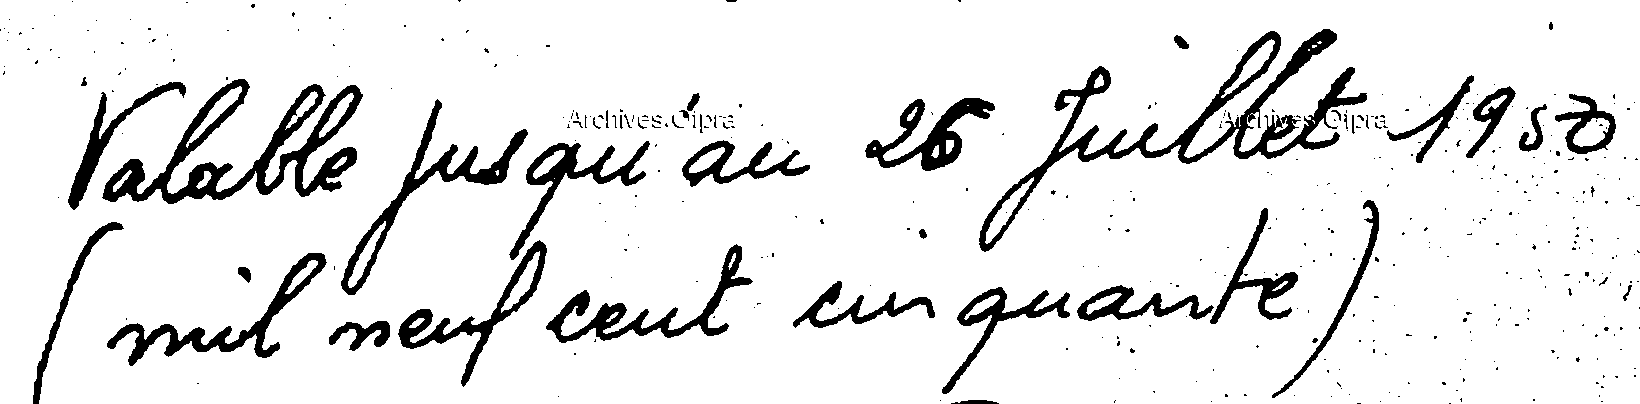 Valable jusqu'au 26 Juillet 1950
(mil neuf cent cinquante)
Archives Ofpra
Archives Ofpra